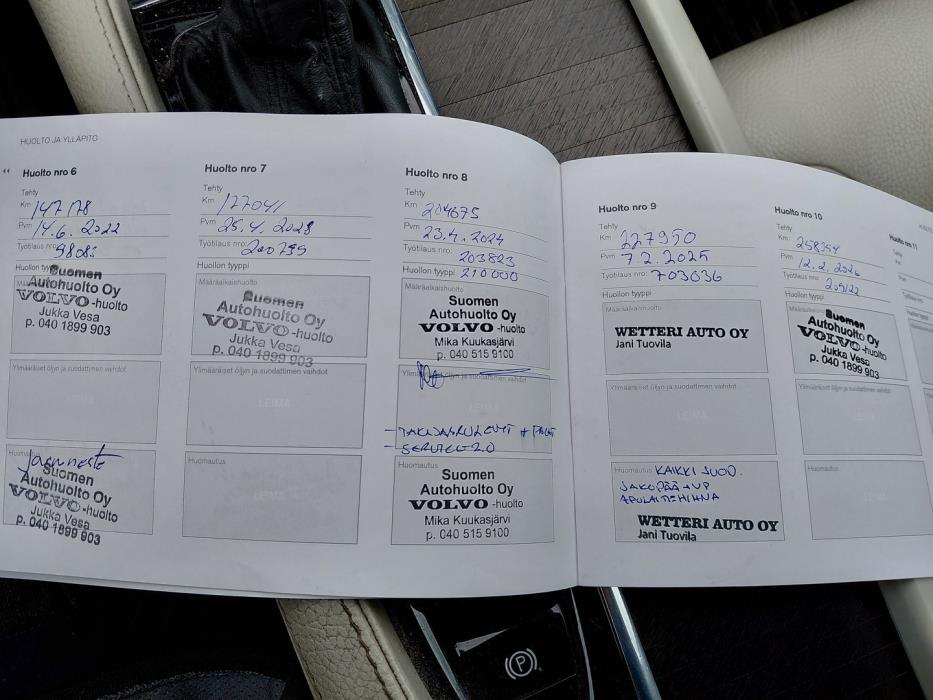 HUOLTO JA YLLÄPITO
Huolto nro 6
Tehty
Km 147178
Pvm 14.6.2022
Työtilaus nro: 98083
Huollon tyyppi
Suomen
Autohuolto Oy
VOLVO-huolto
Jukka Vesa
p. 040 1899 903
Ylimääräiset öljyn ja suodattimen vaihdot
LEIMA
Huomautus
Jarruneste
Suomen
Autohuolto Oy
VOLVO-huolto
Jukka Vesa
p. 040 1899 903
Huolto nro 7
Tehty
Km 177041
Pvm 25.4.2023
Työtilaus nro: 200799
Huollon tyyppi
Määräaikaishuolto
Suomen
Autohuolto Oy
VOLVO-huolto
Jukka Vesa
p. 040 1899 903
Ylimääräiset öljyn ja suodattimen vaihdot
LEIMA
Huomautus
LEIMA
Huolto nro 8
Tehty
Km 204675
Pvm 23.4.2024
Työtilaus nro: 203823
Huollon tyyppi 210000
Määräaikaishuolto
Suomen
Autohuolto Oy
VOLVO -huolto
Mika Kuukasjärvi
p. 040 515 9100
Ylimääräiset öljyn ja suodattimen vaihdot
- TAKAJARRULEVYT + PALAT
- SERVICE 2.0
Huomautus
Suomen
Autohuolto Oy
VOLVO -huolto
Mika Kuukasjärvi
p. 040 515 9100
Huolto nro 9
Tehty
Km 227950
Pvm 7.2.2025
Työtilaus nro: 703036
Huollon tyyppi
Määräaikaishuolto
WETTERI AUTO OY
Jani Tuovila
Ylimääräiset öljyn ja suodattimen vaihdot
LEIMA
Huomautus KAIKKI SUOD.
JAKOPÄÄ + VP
APULAITEHIHNA
WETTERI AUTO OY
Jani Tuovila
Huolto nro 10
Tehty
Km 258354
Pvm 12.2.2026
Työtilaus nro:
Huollon tyyppi
Suomen
Autohuolto Oy
VOLVO-huolto
Jukka Vesa
p. 040 1899 903
Ylimääräiset öljyn ja suodattimen vaihdot
Huomautus
Huolto nro 11
P